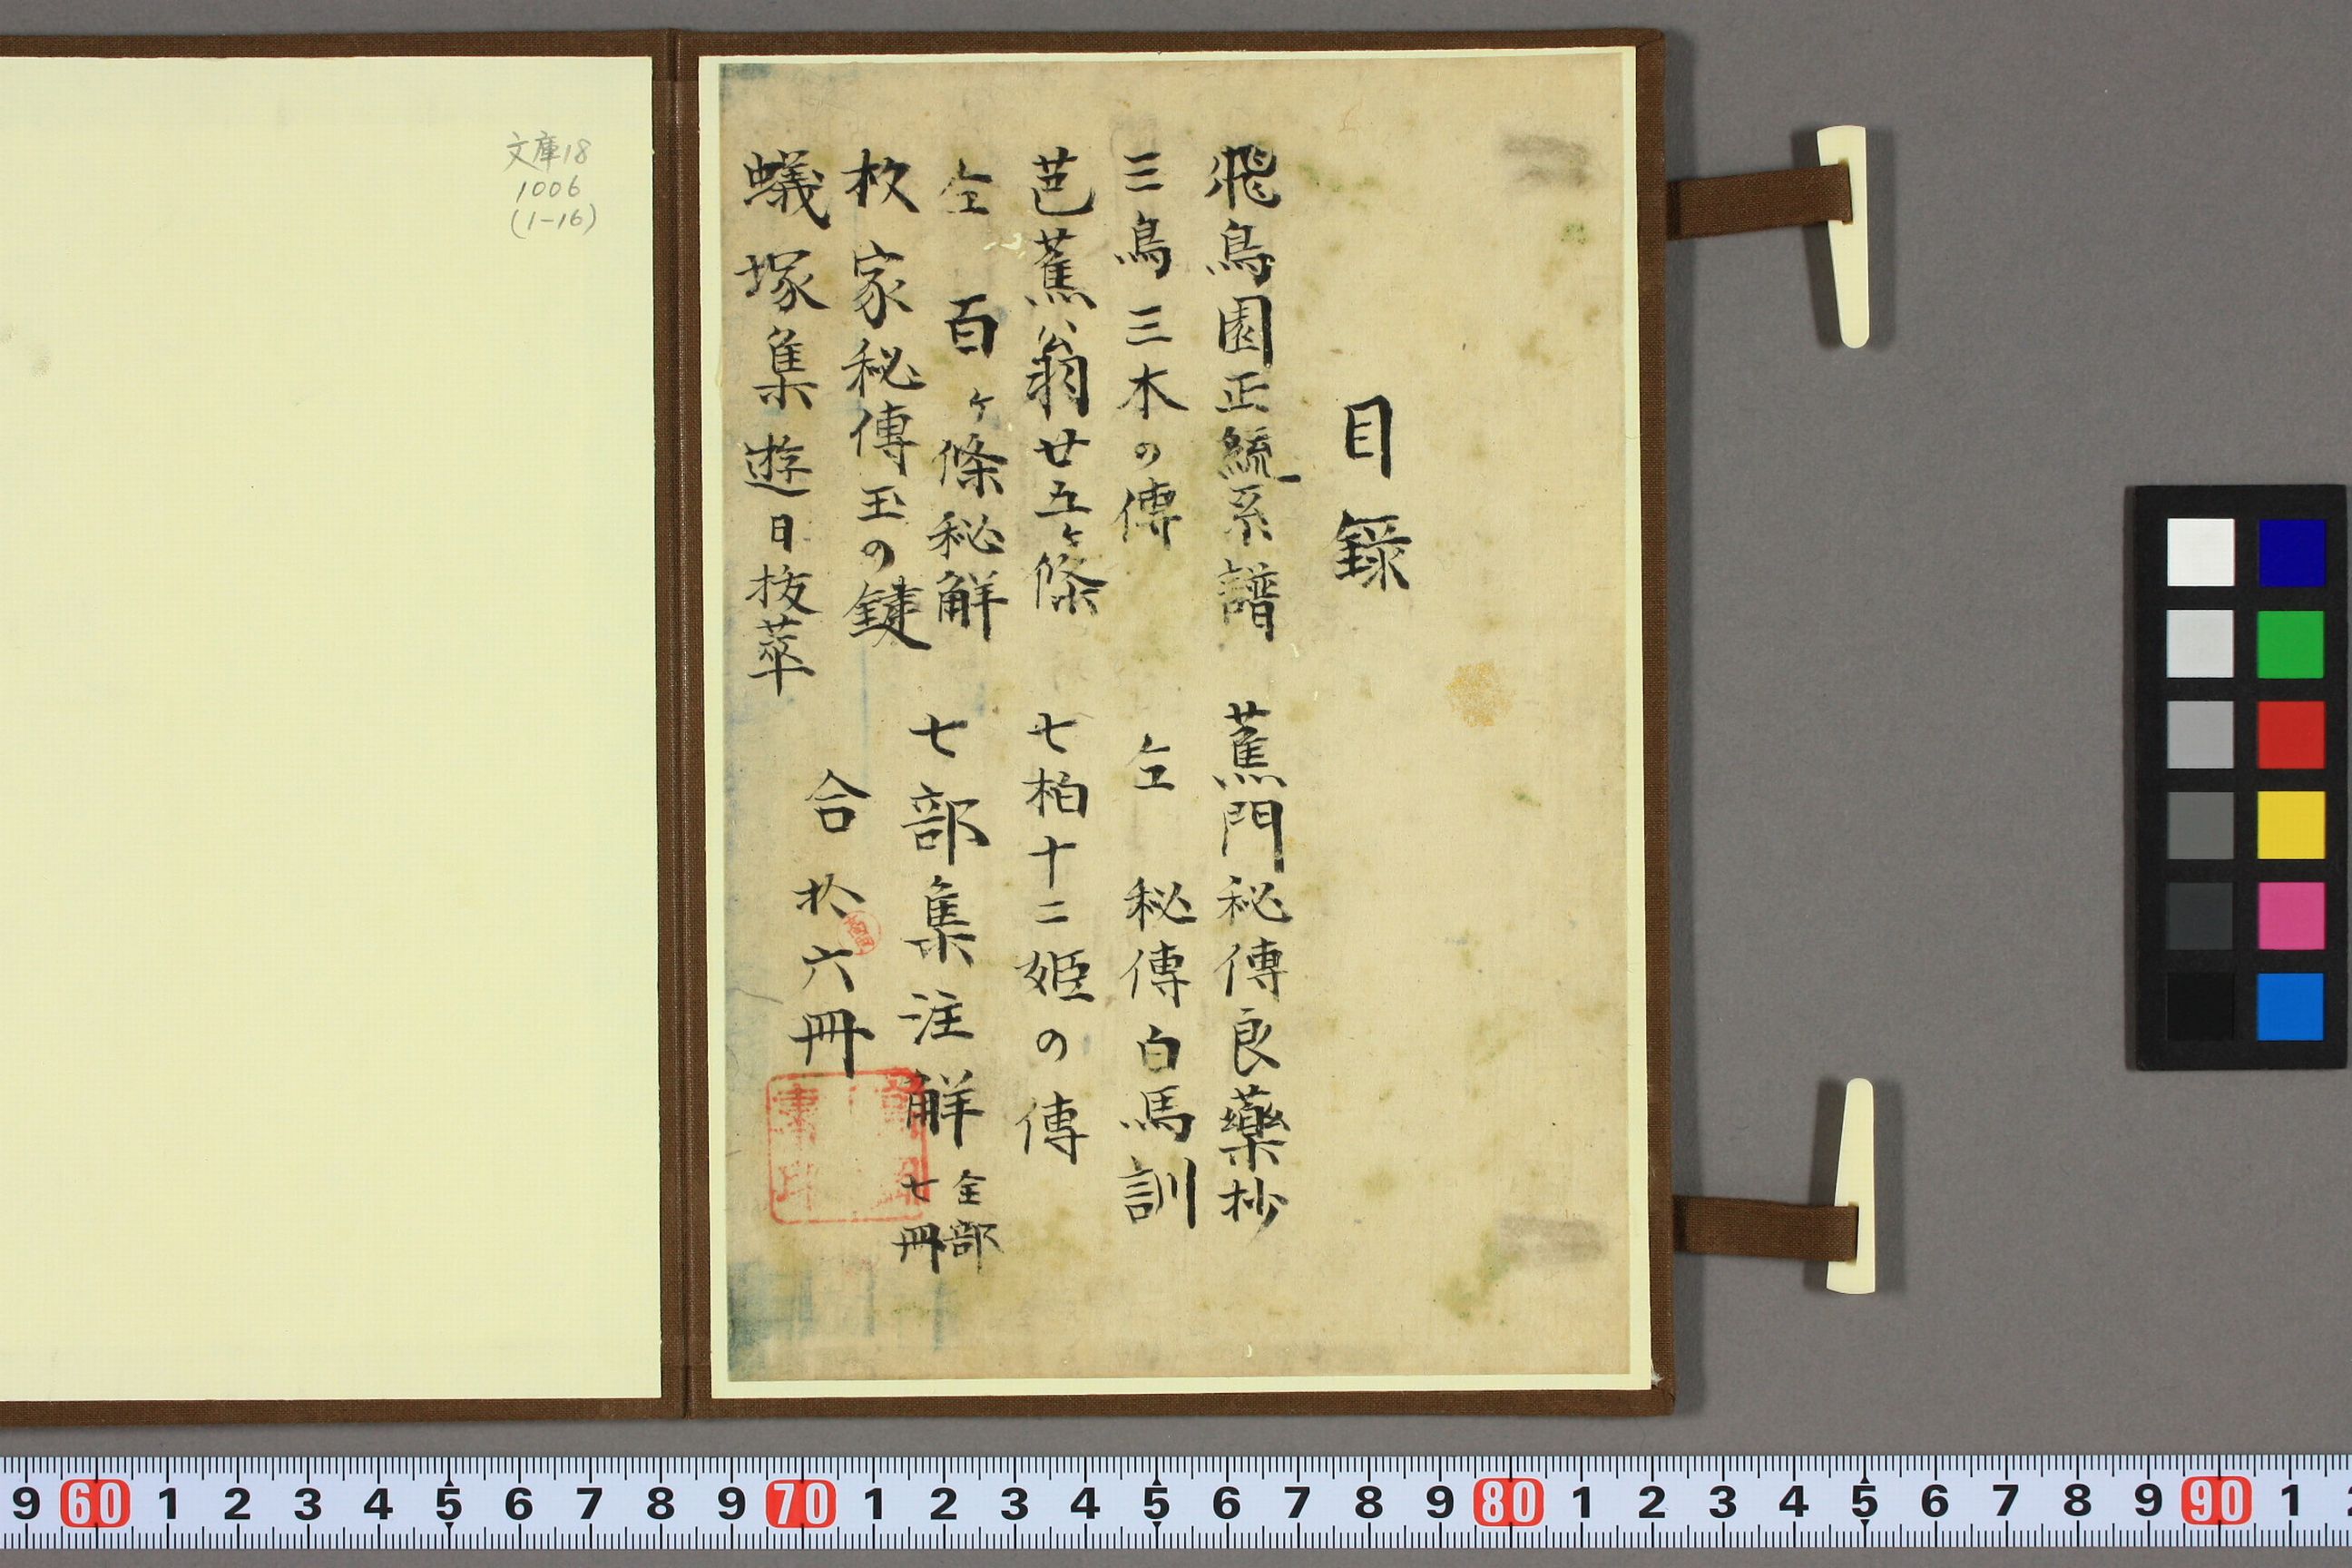 目錄
飛鳥園正統系譜　蕉門秘傳良藥抄
三鳥三木の傳　仝　秘傳白馬訓
芭蕉翁廿五ヶ條　七柏十二姫の傳
仝　百ヶ條秘解　七部集注解 全部七冊
杦家秘傳玉の鍵
蟻塚集遊日抜萃
合　六冊
文庫18
1006
(1-16)
9 60 1 2 3 4 5 6 7 8 9 70 1 2 3 4 5 6 7 8 9 80 1 2 3 4 5 6 7 8 9 90 1